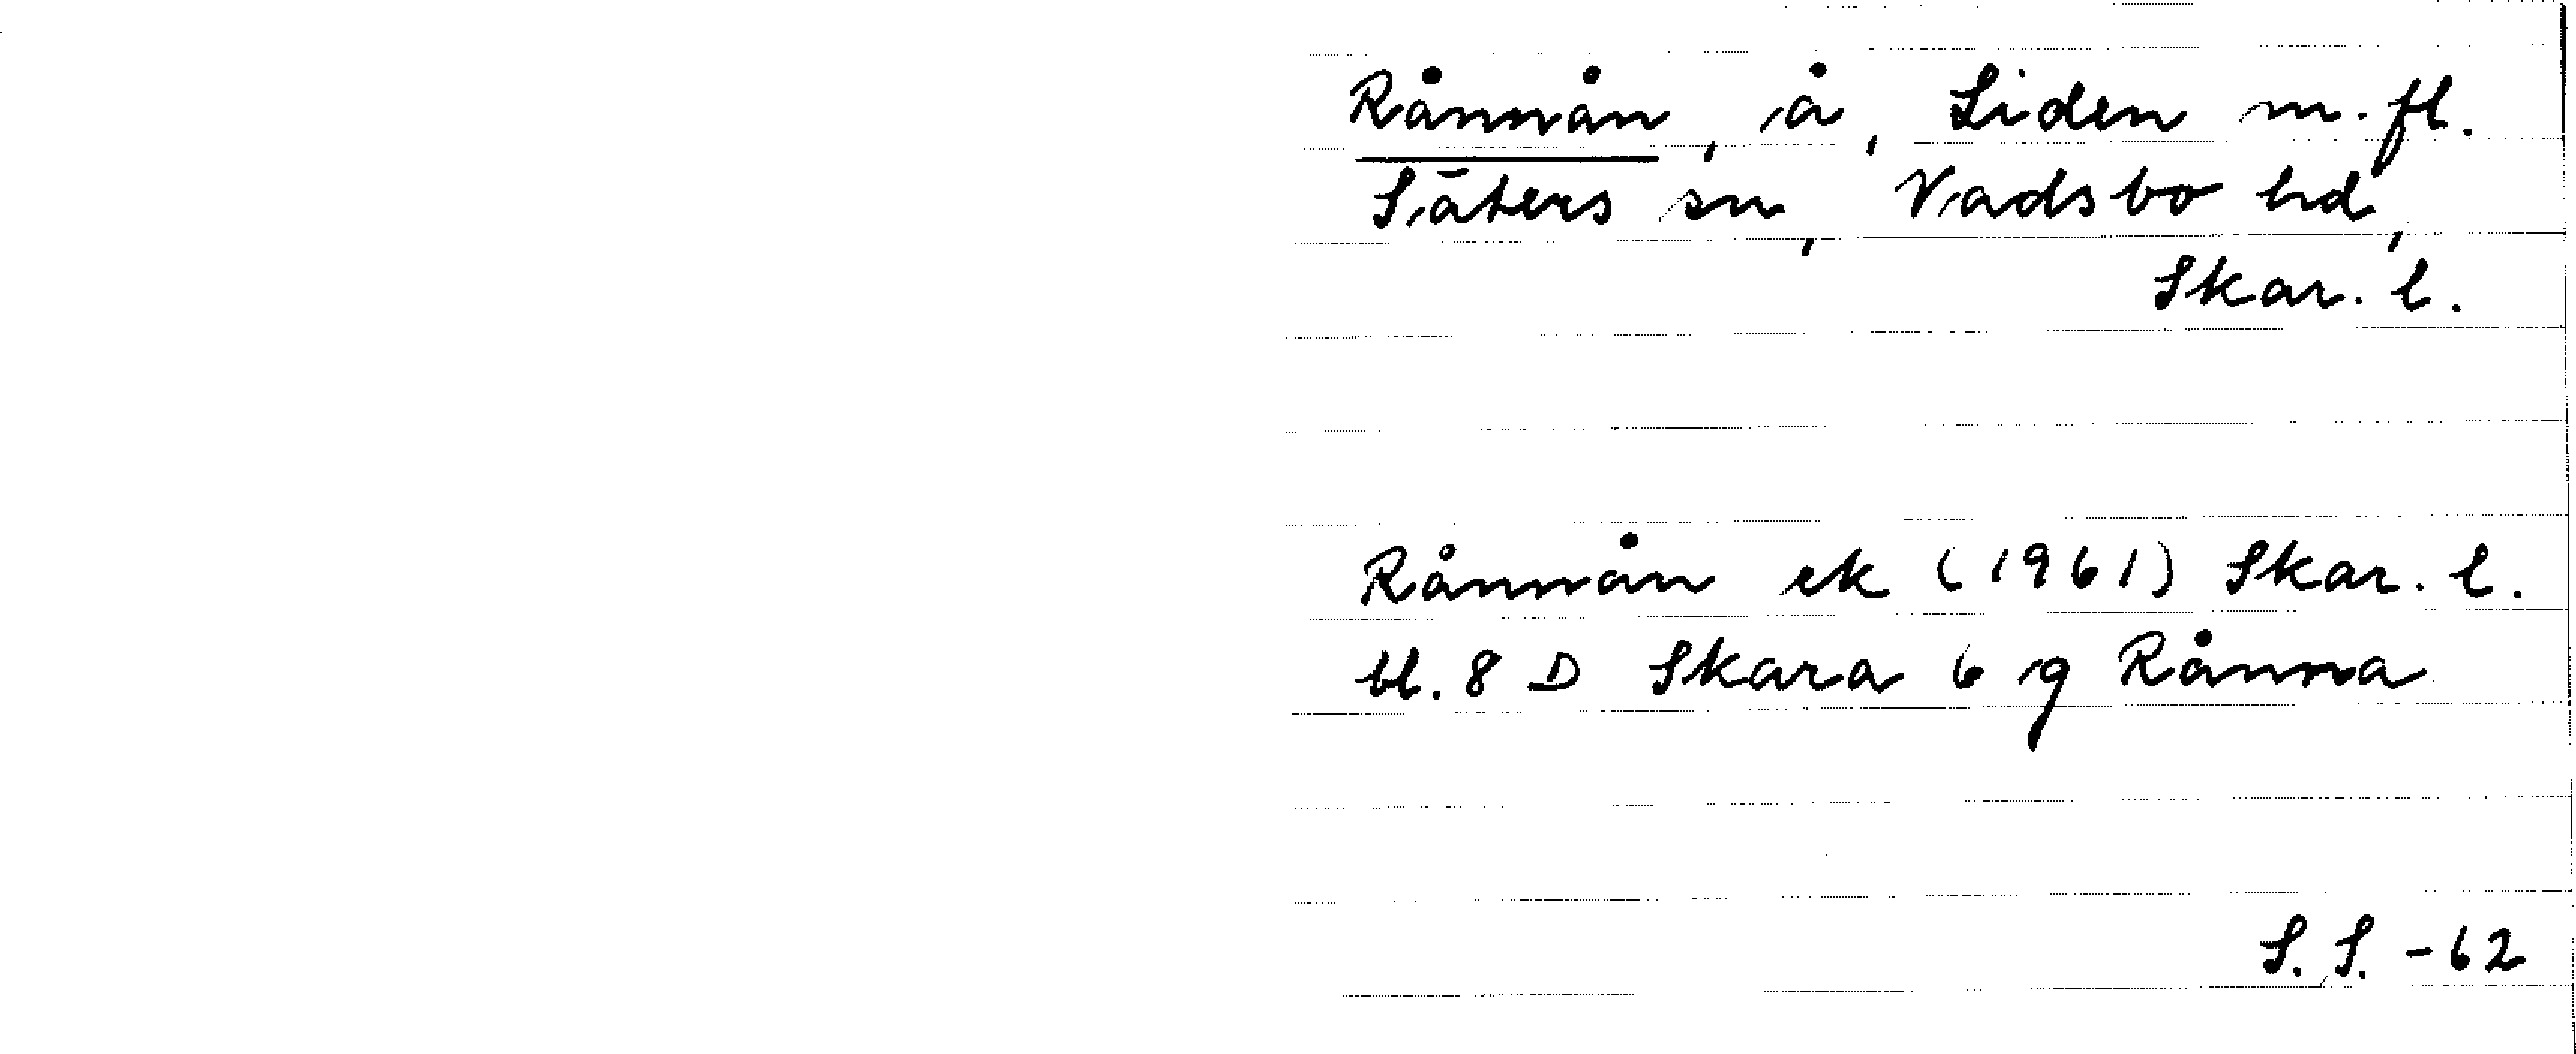 Rånnån, å, Liden m.fl.
Säters sn, Vadsbo hd,
Skar. l.
Rånnån ek (1961) Skar. l.
bl. 8 D Skara 6 g Rånna
S. S. -62